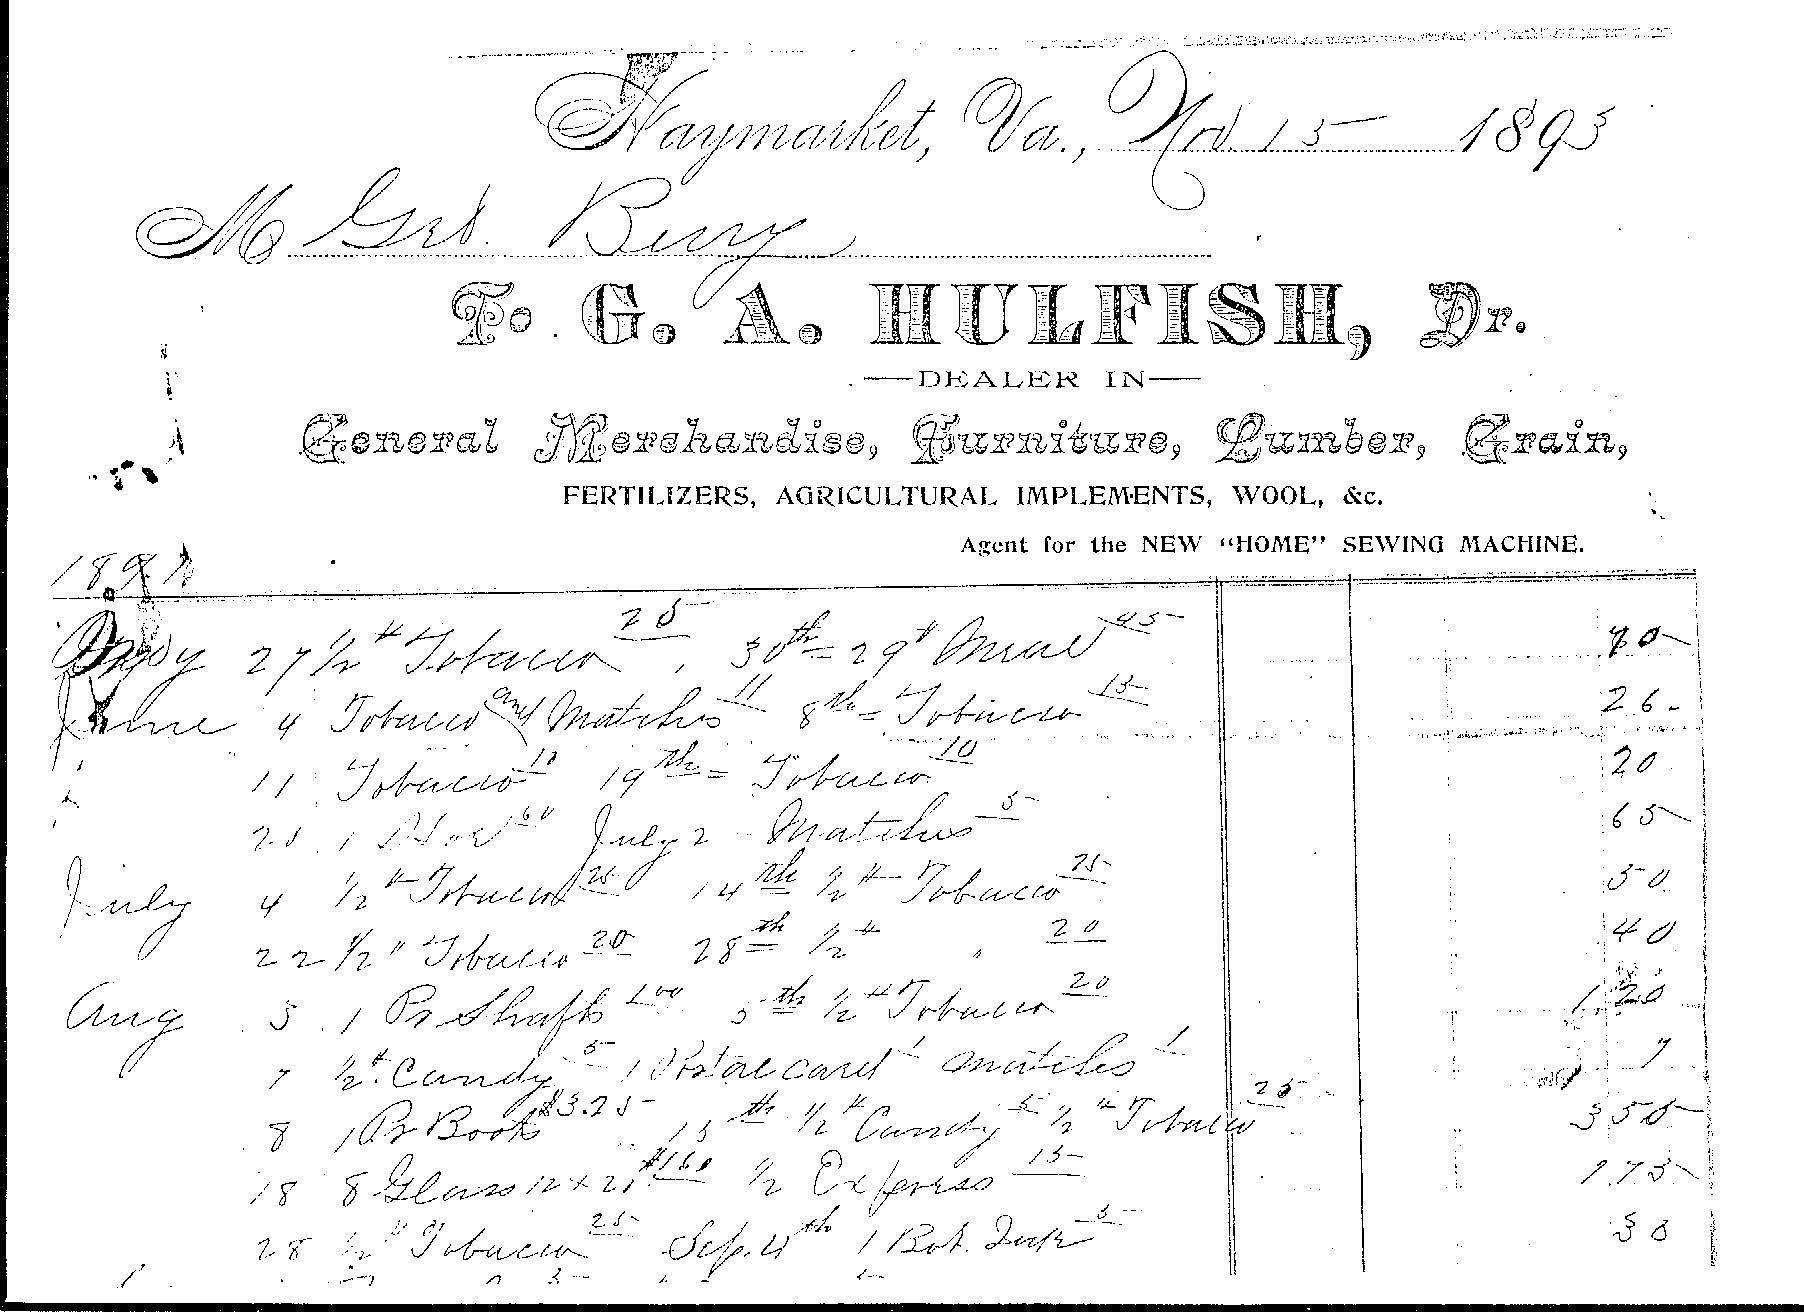 Haymarket, Va., Nov. 15 1893
M Geo. Berry
To G. A. HULFISH, Dr.
—DEALER IN—
General Merchandise, Furniture, Lumber, Grain,
FERTILIZERS, AGRICULTURAL IMPLEMENTS, WOOL, &c.
Agent for the NEW "HOME" SEWING MACHINE.
189
May 27 1/2 # Tobacco 25 30th = 29 # Meal 45 70
June 4 Tobacco and Matches 11 8th = Tobacco 15 26
11 Tobacco 10 19th = Tobacco 10 20
1 60 July 2 Matches 5 65
July 4 1/2 # Tobacco 25 14th 1/2 # Tobacco 25 50
22 1/2 " Tobacco 20 28th 1/2 # " 20 40
Aug 3 1 Pr Shafts 1.00 5th 1/2 # Tobacco 20 1 20
7 1/2 # Candy 5 1 Postal card 1 matches 1 7
8 1 Pr Boots $3.25 15th 1/2 # Candy 5 1/2 # Tobacco 25 3 55
18 8 Glass 12 x 160 1/2 Express 15 1 75
28 1/2 # Tobacco 25 Sep. 4th 1 Bot. 5 30